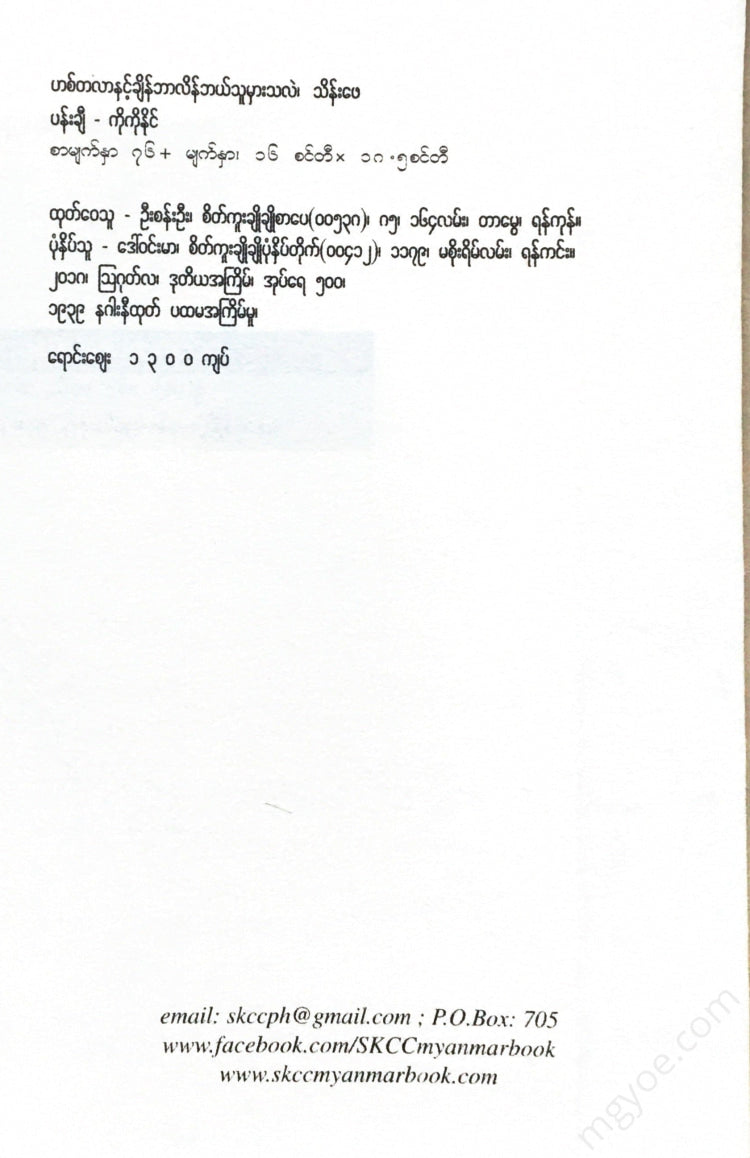 ဟစ်တလာနှင့်ချိန်ဘာလိန်ဘယ်သူမှားသလဲ၊ သိန်းဖေ
ပန်းချီ - ကိုကိုနိုင်
စာမျက်နှာ ၇၆ + မျက်နှာ၊ ၁၆ စင်တီ × ၁၈.၅စင်တီ
ထုတ်ဝေသူ - ဦးစန်းဦး၊ စိတ်ကူးချိုချိုစာပေ(၀၀၅၃၈)၊ ၈၅၊ ၁၆၄လမ်း၊ တာမွေ၊ ရန်ကုန်။
ပုံနှိပ်သူ - ဒေါ်ဝင်းမာ၊ စိတ်ကူးချိုချိုပုံနှိပ်တိုက်(၀၀၄၁၂)၊ ၁၁၇၉၊ မစိုးရိမ်လမ်း၊ ရန်ကင်း။
၂၀၁၈၊ ဩဂုတ်လ၊ ဒုတိယအကြိမ်၊ အုပ်ရေ ၅၀၀၊
၁၉၃၉ နဂါးနီထုတ် ပထမအကြိမ်မူ၊
ရောင်းဈေး ၁ ၃ ၀ ၀ ကျပ်
email: skccph@gmail.com ; P.O.Box: 705
www.facebook.com/SKCCmyanmarbook
www.skccmyanmarbook.com
mgyoe.com